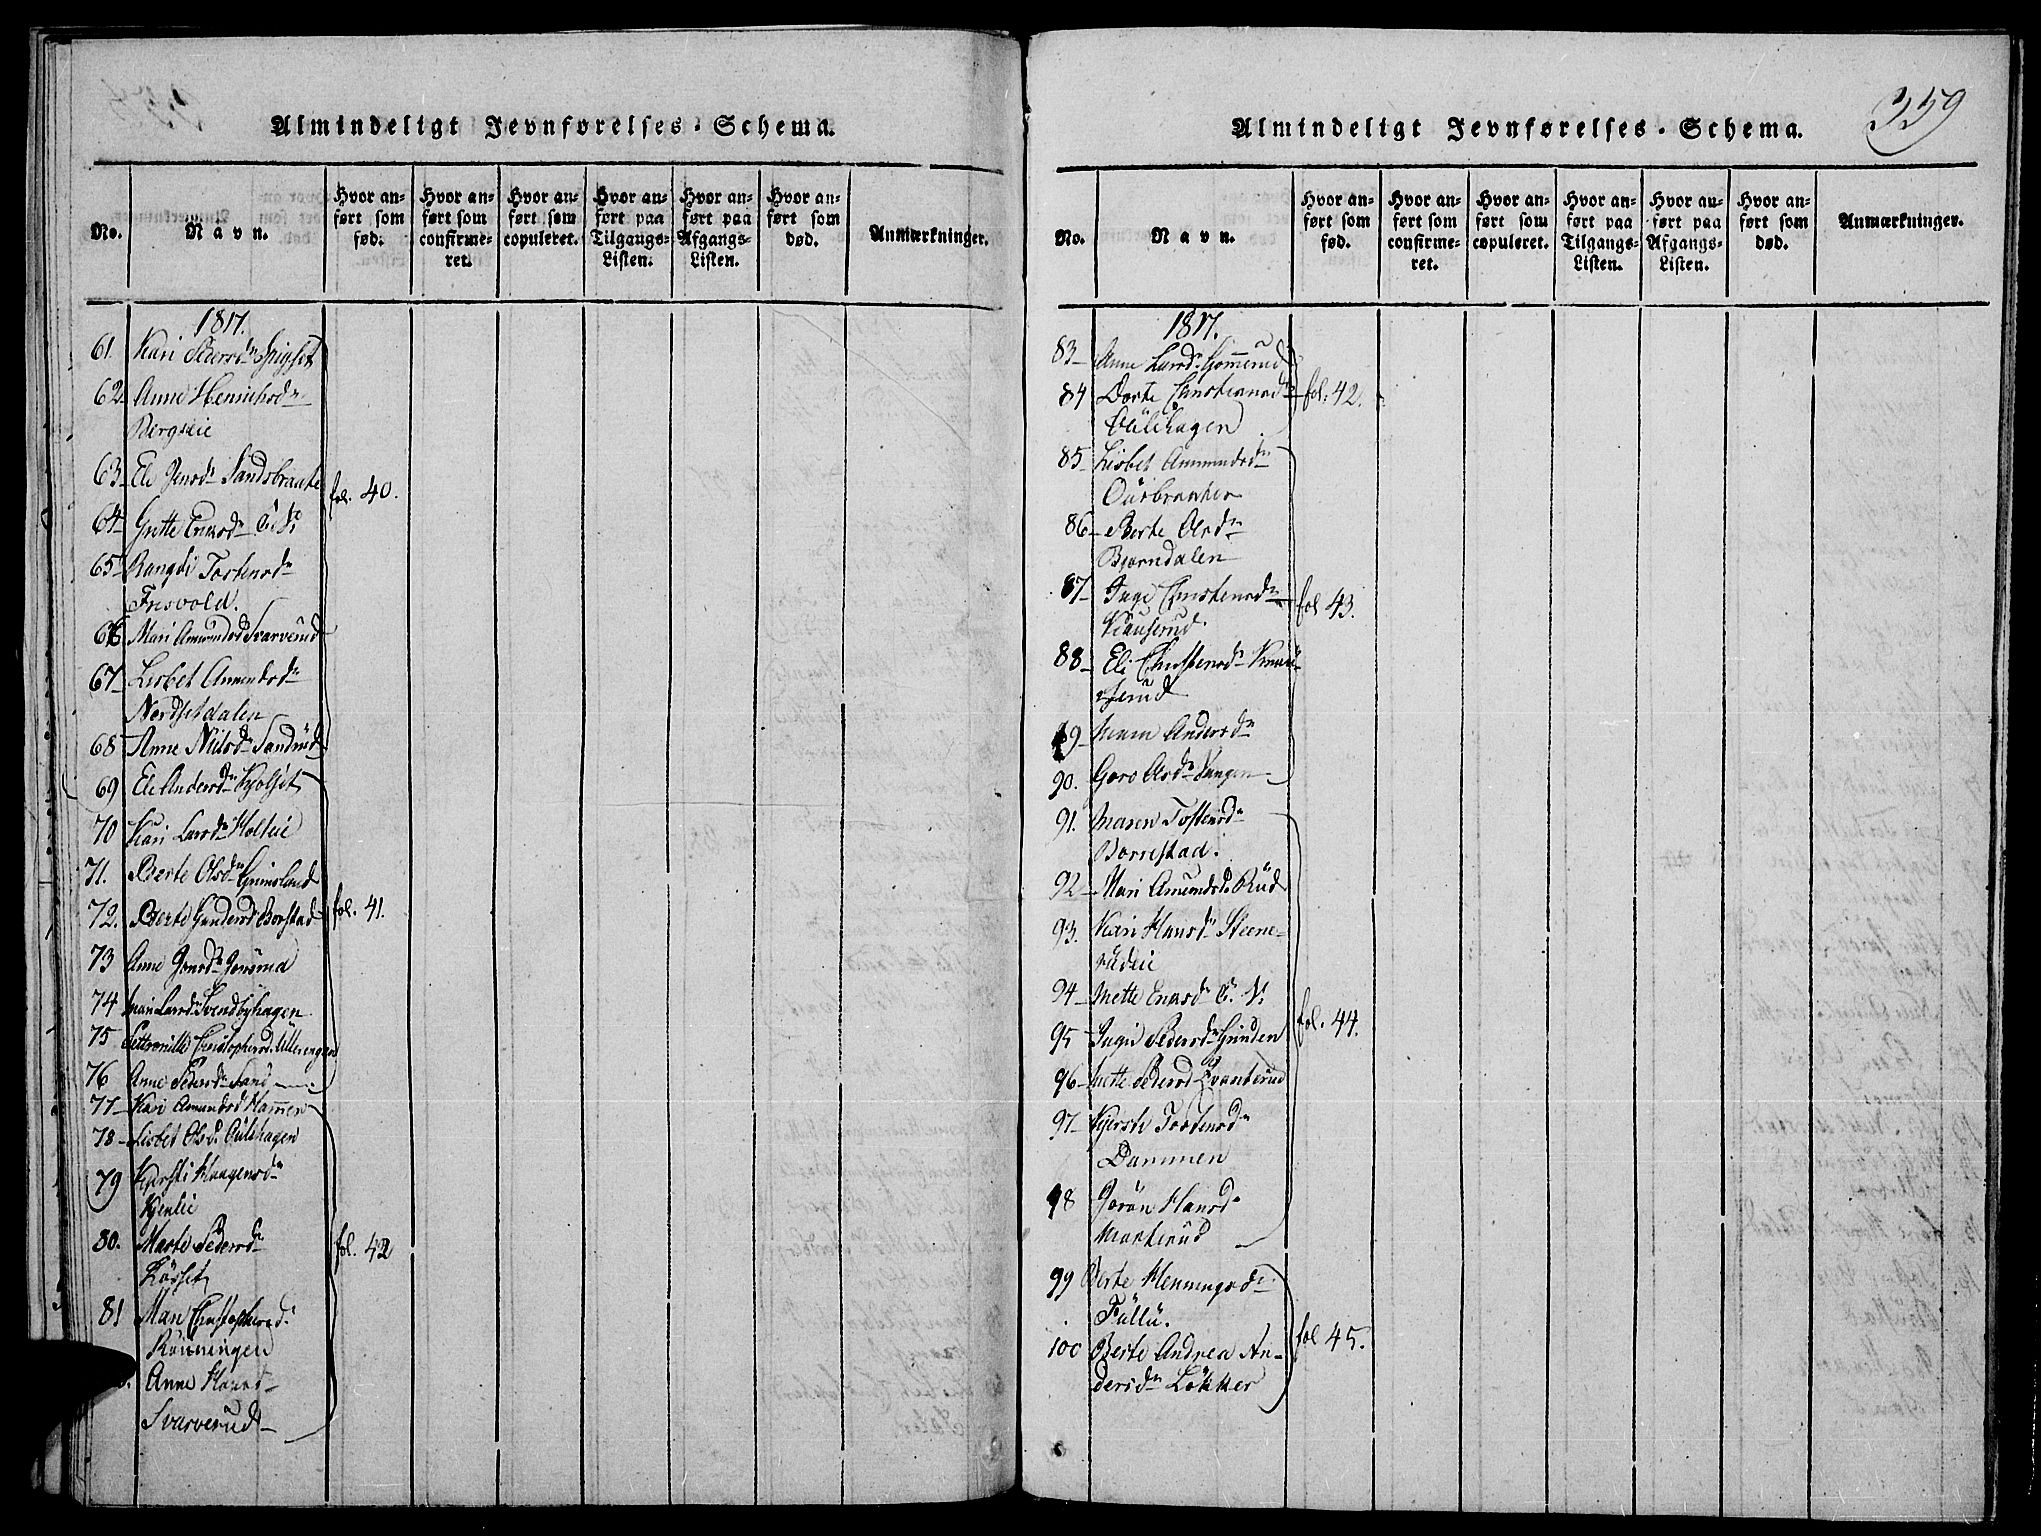 Almindeligt Jevnførelses-Schema.
No.
Navn.
Hvor an-
ført som
fød.
Hvor an-
ført som
confirme-
ret.
Hvor an-
ført som
copuleret.
Hvor an-
ført paa
Tilgangs-
Listen.
Hvor an-
ført paa
Afgangs-
Listen.
Hvor an-
ført som
død.
Anmærkninger.
1817.
61. Kari Pedersd
62 Anne
63 Eli Jensd Sandsbraate
fol. 40.
64 Grette
65 Rangdi Tostensd
Frisvold.
66 Mari Amundsd Svarverud
67 Lisbet Amundsd
Nordsetdalen
68 Anne Nielsd Sandrud
69 Eli Andersd
70 Kari Larsd Holteie
71. Berte Olsd Grimsland
72. Berte Gundersd Borstad fol. 41.
73 Anne Jonsd
74 Mari Larsd Svendbyhagen
75 Christophersd
76 Anne Pedersd Sand
77 Kari Amundsd Hammen
78 Lisbet Olsd
79 Karsti Haagensd
80. Marte Pedersd fol. 42
81 Mari Christophersd
Rönningen
Anne Hansd
Svarverud
359
Almindeligt Jevnførelses-Schema.
No.
Navn.
Hvor an-
ført som
fød.
Hvor an-
ført som
confirme-
ret.
Hvor an-
ført som
copuleret.
Hvor an-
ført paa
Tilgangs-
Listen.
Hvor an-
ført paa
Afgangs-
Listen.
Hvor an-
ført som
død.
Anmærkninger.
1817.
83 Anne Larsd Gommerud
84 Dorte Christensd fol. 42.
85 Lisbet Amundsd
86 Berte Olsd
Bjørndalen
87 Inge Christensd fol 43.
88 Eli Christensd
serud
89 Maren Andersd
90. Goro Olsd Vangen
91. Maren Tostensd
Borrestad.
92 Mari Amundsd Rud
93. Kari Hansd Steene-
rudeie
94 Mette
fol. 44.
95 Ingri Pedersd Grinden
96 Mette Pedersd
97 Kjersti Tostensd
Dammen
98 Jorön Hansd
Markerud
99 Berte Henningsd
Fullu.
100 Berte Andrea An- fol 45.
dersd Lökker